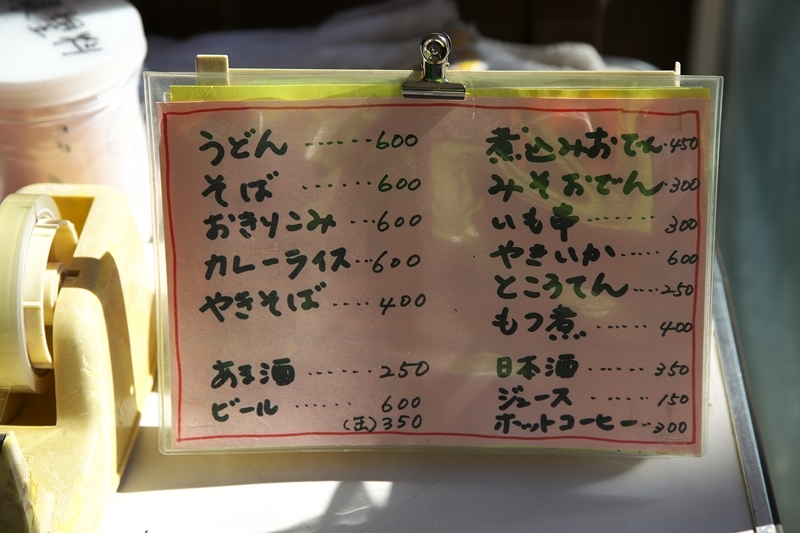 うどん ‥‥‥600
そば ‥‥‥600
おきりこみ ‥‥600
カレーライス‥‥600
やきそば ‥‥400
あま酒 ‥‥‥250
ビール ‥‥‥ 600
350
煮込みおでん‥450
みそおでん‥300
いも串‥‥‥300
やきいか‥‥‥600
ところてん‥‥250
もつ煮‥‥‥400
日本酒‥‥‥350
ジュース‥‥‥150
ホットコーヒー‥300